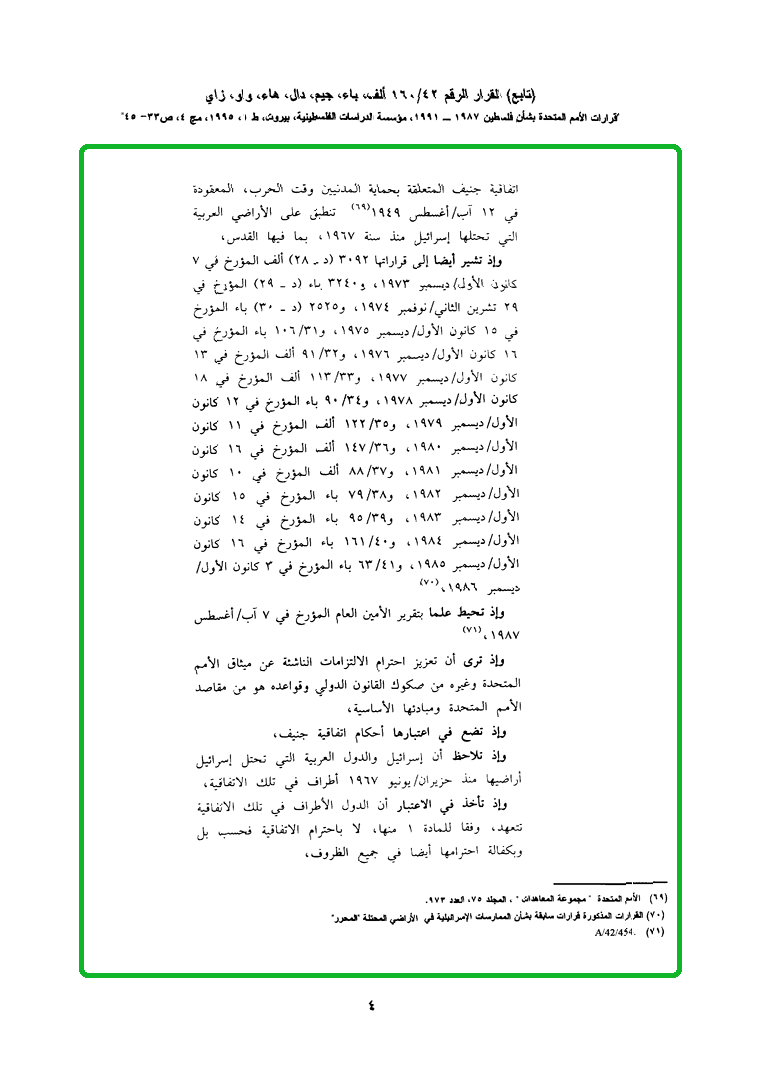 (تابع) القرار الرقم ١٦٠/٤٢ ألف، باء، جيم، دال، هاء، واو، زاي
"قرارات الأمم المتحدة بشأن فلسطين ١٩٨٧ ــ ١٩٩١، مؤسسة الدراسات الفلسطينية، بيروت، ط ١، ١٩٩٥، مج ٤، ص٣٣- ٤٥"
اتفاقية جنيف المتعلقة بحماية المدنيين وقت الحرب، المعقودة
في ١٢ آب/أغسطس ١٩٤٩(٦٩) تنطبق على الأراضي العربية
التي تحتلها إسرائيل منذ سنة ١٩٦٧، بما فيها القدس،
وإذ تشير أيضا إلى قراراتها ٣٠٩٢ (د ـ ٢٨) ألف المؤرخ في ٧
كانون الأول/ديسمبر ١٩٧٣، و٣٢٤٠ باء (د ـ ٢٩) المؤرخ في
٢٩ تشرين الثاني/نوفمبر ١٩٧٤، و٢٥٢٥ (د ـ ٣٠) باء المؤرخ
في ١٥ كانون الأول/ديسمبر ١٩٧٥، و١٠٦/٣١ باء المؤرخ في
١٦ كانون الأول/ديسمبر ١٩٧٦، و٩١/٣٢ ألف المؤرخ في ١٣
كانون الأول/ديسمبر ١٩٧٧، و١١٣/٣٣ ألف المؤرخ في ١٨
كانون الأول/ديسمبر ١٩٧٨، و٩٠/٣٤ باء المؤرخ في ١٢ كانون
الأول/ديسمبر ١٩٧٩، و١٢٢/٣٥ ألف المؤرخ في ١١ كانون
الأول/ديسمبر ١٩٨٠، و١٤٧/٣٦ ألف المؤرخ في ١٦ كانون
الأول/ديسمبر ١٩٨١، و٨٨/٣٧ ألف المؤرخ في ١٠ كانون
الأول/ديسمبر ١٩٨٢، و٧٩/٣٨ باء المؤرخ في ١٥ كانون
الأول/ديسمبر ١٩٨٣، و٩٥/٣٩ باء المؤرخ في ١٤ كانون
الأول/ديسمبر ١٩٨٤، و١٦١/٤٠ باء المؤرخ في ١٦ كانون
الأول/ديسمبر ١٩٨٥، و٦٣/٤١ باء المؤرخ في ٣ كانون الأول/
ديسمبر ١٩٨٦،(٧٠)
وإذ تحيط علما بتقرير الأمين العام المؤرخ في ٧ آب/أغسطس
١٩٨٧،(٧١)
وإذ ترى أن تعزيز احترام الالتزامات الناشئة عن ميثاق الأمم
المتحدة وغيره من صكوك القانون الدولي وقواعده هو من مقاصد
الأمم المتحدة ومبادئها الأساسية،
وإذ تضع في اعتبارها أحكام اتفاقية جنيف،
وإذ تلاحظ أن إسرائيل والدول العربية التي تحتل إسرائيل
أراضيها منذ حزيران/يونيو ١٩٦٧ أطراف في تلك الاتفاقية،
وإذ تأخذ في الاعتبار أن الدول الأطراف في تلك الاتفاقية
تتعهد، وفقا للمادة ١ منها، لا باحترام الاتفاقية فحسب بل
وبكفالة احترامها أيضا في جميع الظروف،
(٦٩) الأمم المتحدة "مجموعة المعاهدات"، المجلد ٧٥، العدد ٩٧٣.
(٧٠) القرارات المذكورة قرارات سابقة بشأن الممارسات الإسرائيلية في الأراضي المحتلة "المحرر"
(٧١) A/42/454.
٤